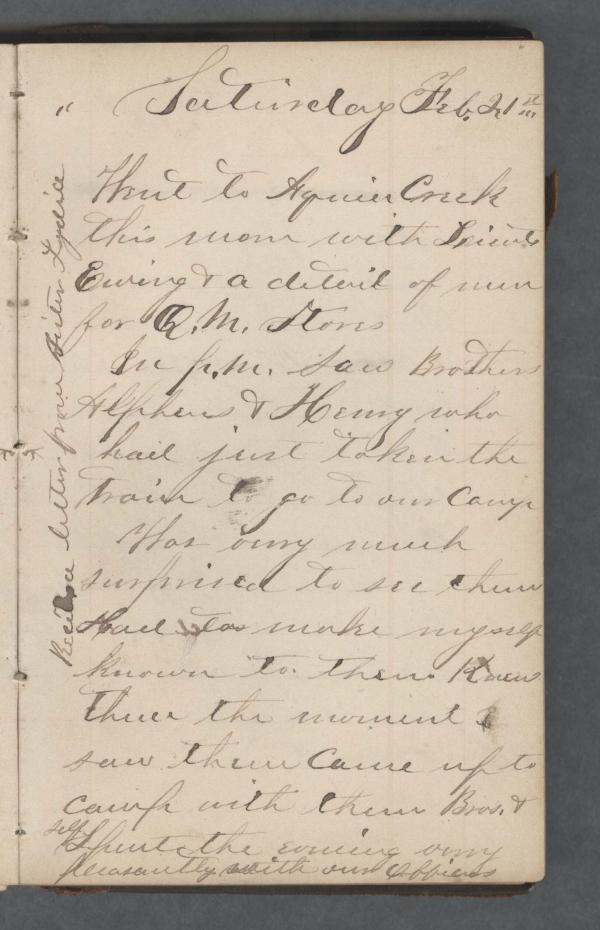 " Saturday Feb. 21st
Went to Aquier Creek
this morn with Lieut.
Ewing & a detail of men
for Q.M. Stores
In p.m. saw Brothers
Alpheus & Henry who
had just taken the
train to go to our Camp
Was very much
surprised to see them
Had to make myself
known to them Knew
them the moment I
saw them Came up to
camp with them Bros. &
self Spent the evening very
pleasantly with our officers
Received letter from Sister Lydia